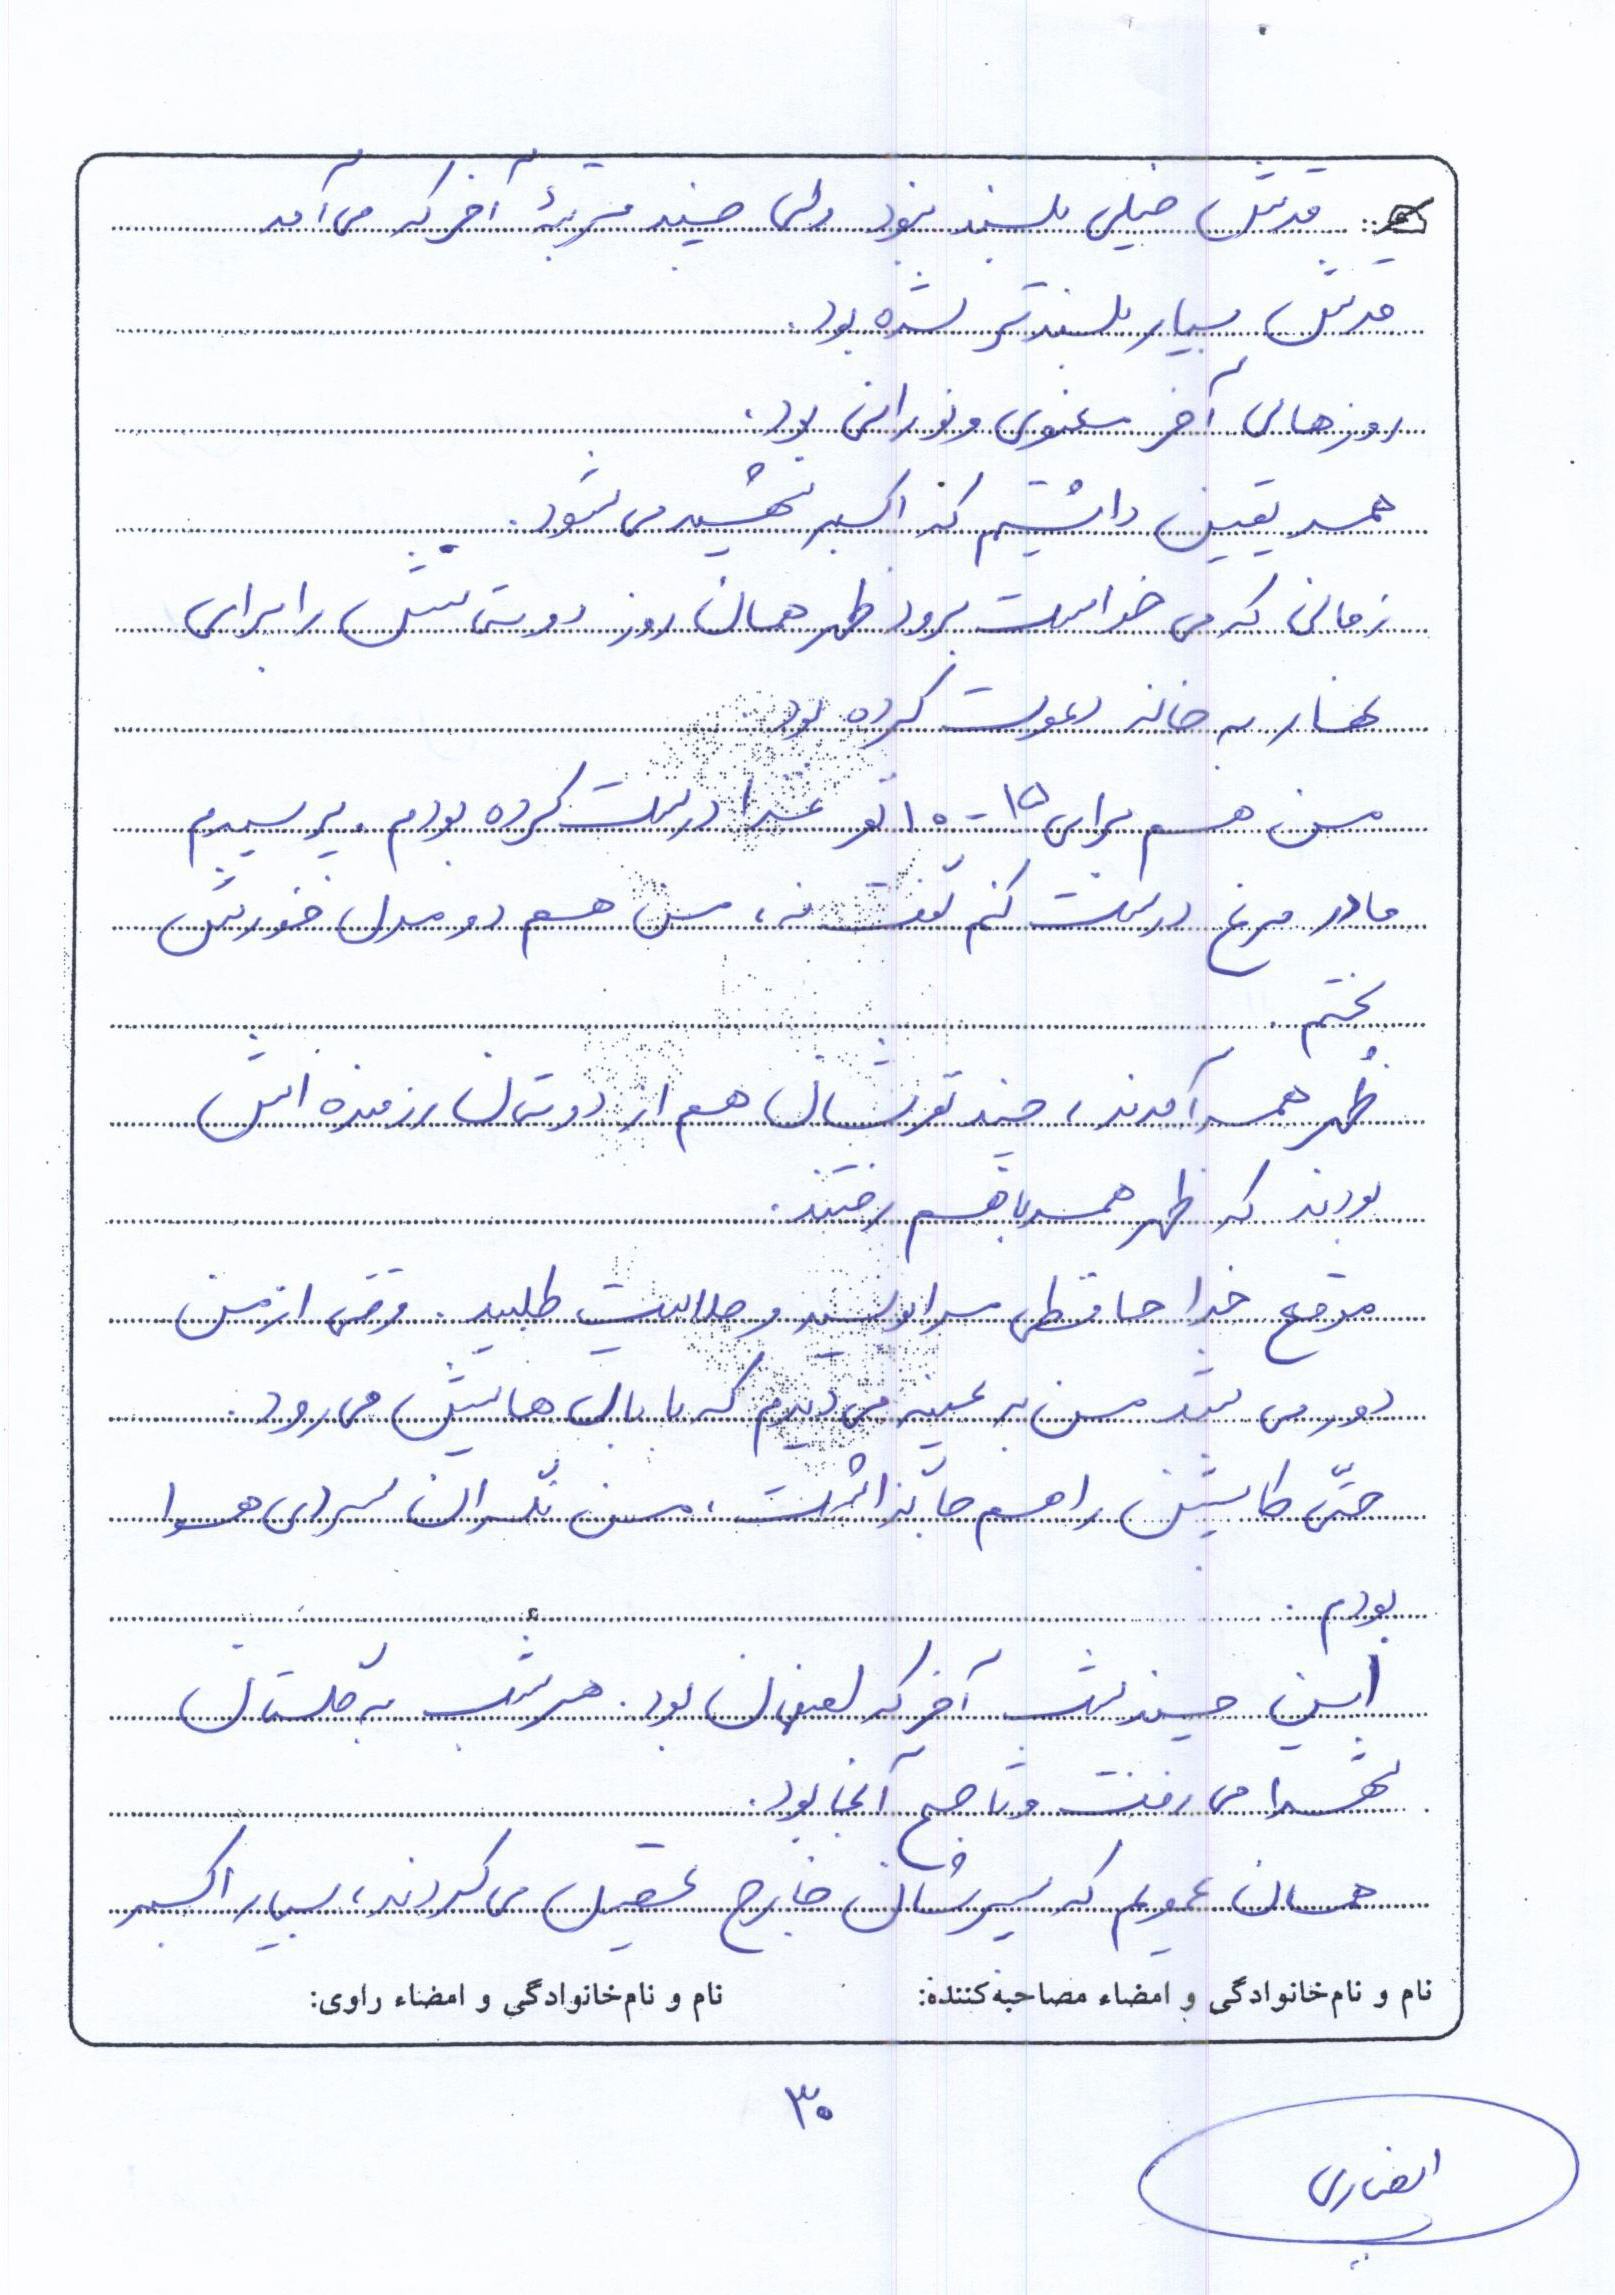 قدش خیلی بلند نبود ولی چند مرتبهٔ آخر که می‌آمد
قدش بسیار بلندتر شده بود.
روزهای آخر معنوی و نورانی بود.
همه یقین داشتیم که اکبر شهید می‌شود.
زمانی که می‌خواست برود ظهر همان روز دوستانش را برای
نهار به خانه دعوت کرده بود
من هم برای ۱۵-۱۰ نفر غذا درست کرده بودم. پرسیدم
مادر مرغ درست کنم گفت نه، من هم دو مدل خورش
پختم.
ظهر همه آمدند، چند نفرشان هم از دوستان رزمنده‌اش
بودند که ظهر همه باهم رفتند.
موقع خداحافظی مرا بوسید و حلالیت طلبید. وقتی از من
دور می‌شد من به عینه می‌دیدم که با بال‌هایش می‌رود.
حتّی کاپشنش را هم جا گذاشت، من نگران سردی هوا
بودم.
این چند شب آخر که اصفهان بود. هر شب به گلستان
شهدا می‌رفت و تا صبح آنجا بود.
همان عمویم که پسرشان خارج تحصیل می‌کردند، بسیار اکبر
نام و نام‌خانوادگی و امضاء مصاحبه‌کننده: نام و نام‌خانوادگی و امضاء راوی:
۳۰
انصاری